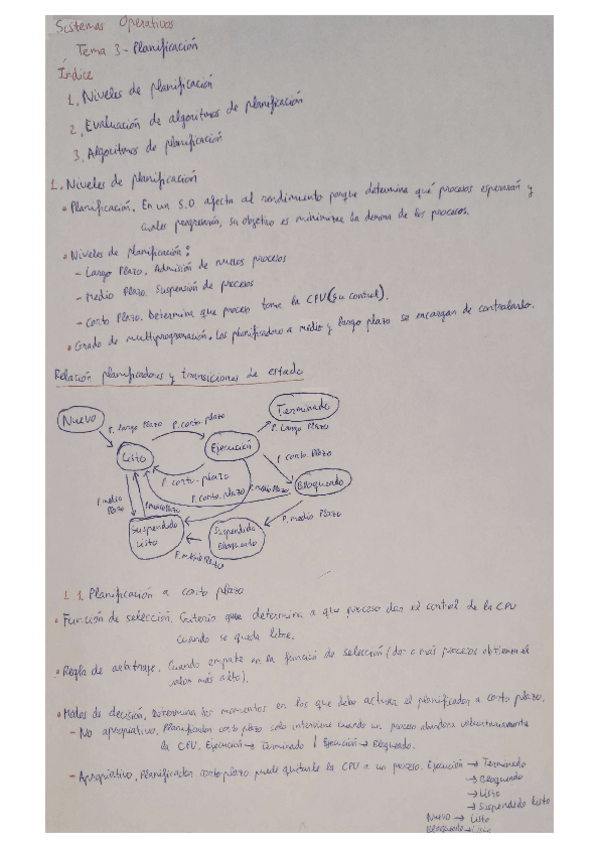 Sistemas Operativos
Tema 3 - Planificación
Índice
1. Niveles de planificación
2. Evaluación de algoritmos de planificación
3. Algoritmos de planificación
1. Niveles de planificación
• Planificación. En un S.O afecta al rendimiento porque determina qué procesos esperarán y
cuales progresarán, su objetivo es minimizar la demora de los procesos.
• Niveles de planificación:
- Largo Plazo. Admisión de nuevos procesos
- Medio Plazo. Suspensión de procesos
- Corto Plazo. Determina que proceso toma la CPU (su control).
• Grado de multiprogramación. Los planificadores a medio y largo plazo se encargan de controlarlo.
Relación planificadores y transiciones de estado
Nuevo
Terminado
P. Largo Plazo
P. corto plazo
P. Largo Plazo
Listo
Ejecución
P. corto plazo
P. corto Plazo
P. corto plazo
P. medio Plazo
Bloqueado
P. medio Plazo
P. medio Plazo
P. medio Plazo
Suspendido Listo
Suspendido Bloqueado
P. medio Plazo
1.1 Planificación a corto plazo
• Función de selección. Criterio que determina a que proceso dar el control de la CPU
cuando se queda libre.
• Regla de arbitraje. Cuando empate en la función de selección (dos o más procesos obtienen el
valor más alto).
• Modos de decisión. Determina los momentos en los que debe actuar el planificador a corto plazo.
- No apropiativo. Planificador corto plazo solo interviene cuando un proceso abandona voluntariamente
la CPU. Ejecución → Terminado | Ejecución → Bloqueado.
- Apropiativo. Planificador corto plazo puede quitarle la CPU a un proceso. Ejecución → Terminado
→ Bloqueado
→ Listo
→ Suspendido Listo
Nuevo → Listo
Bloqueado → Listo